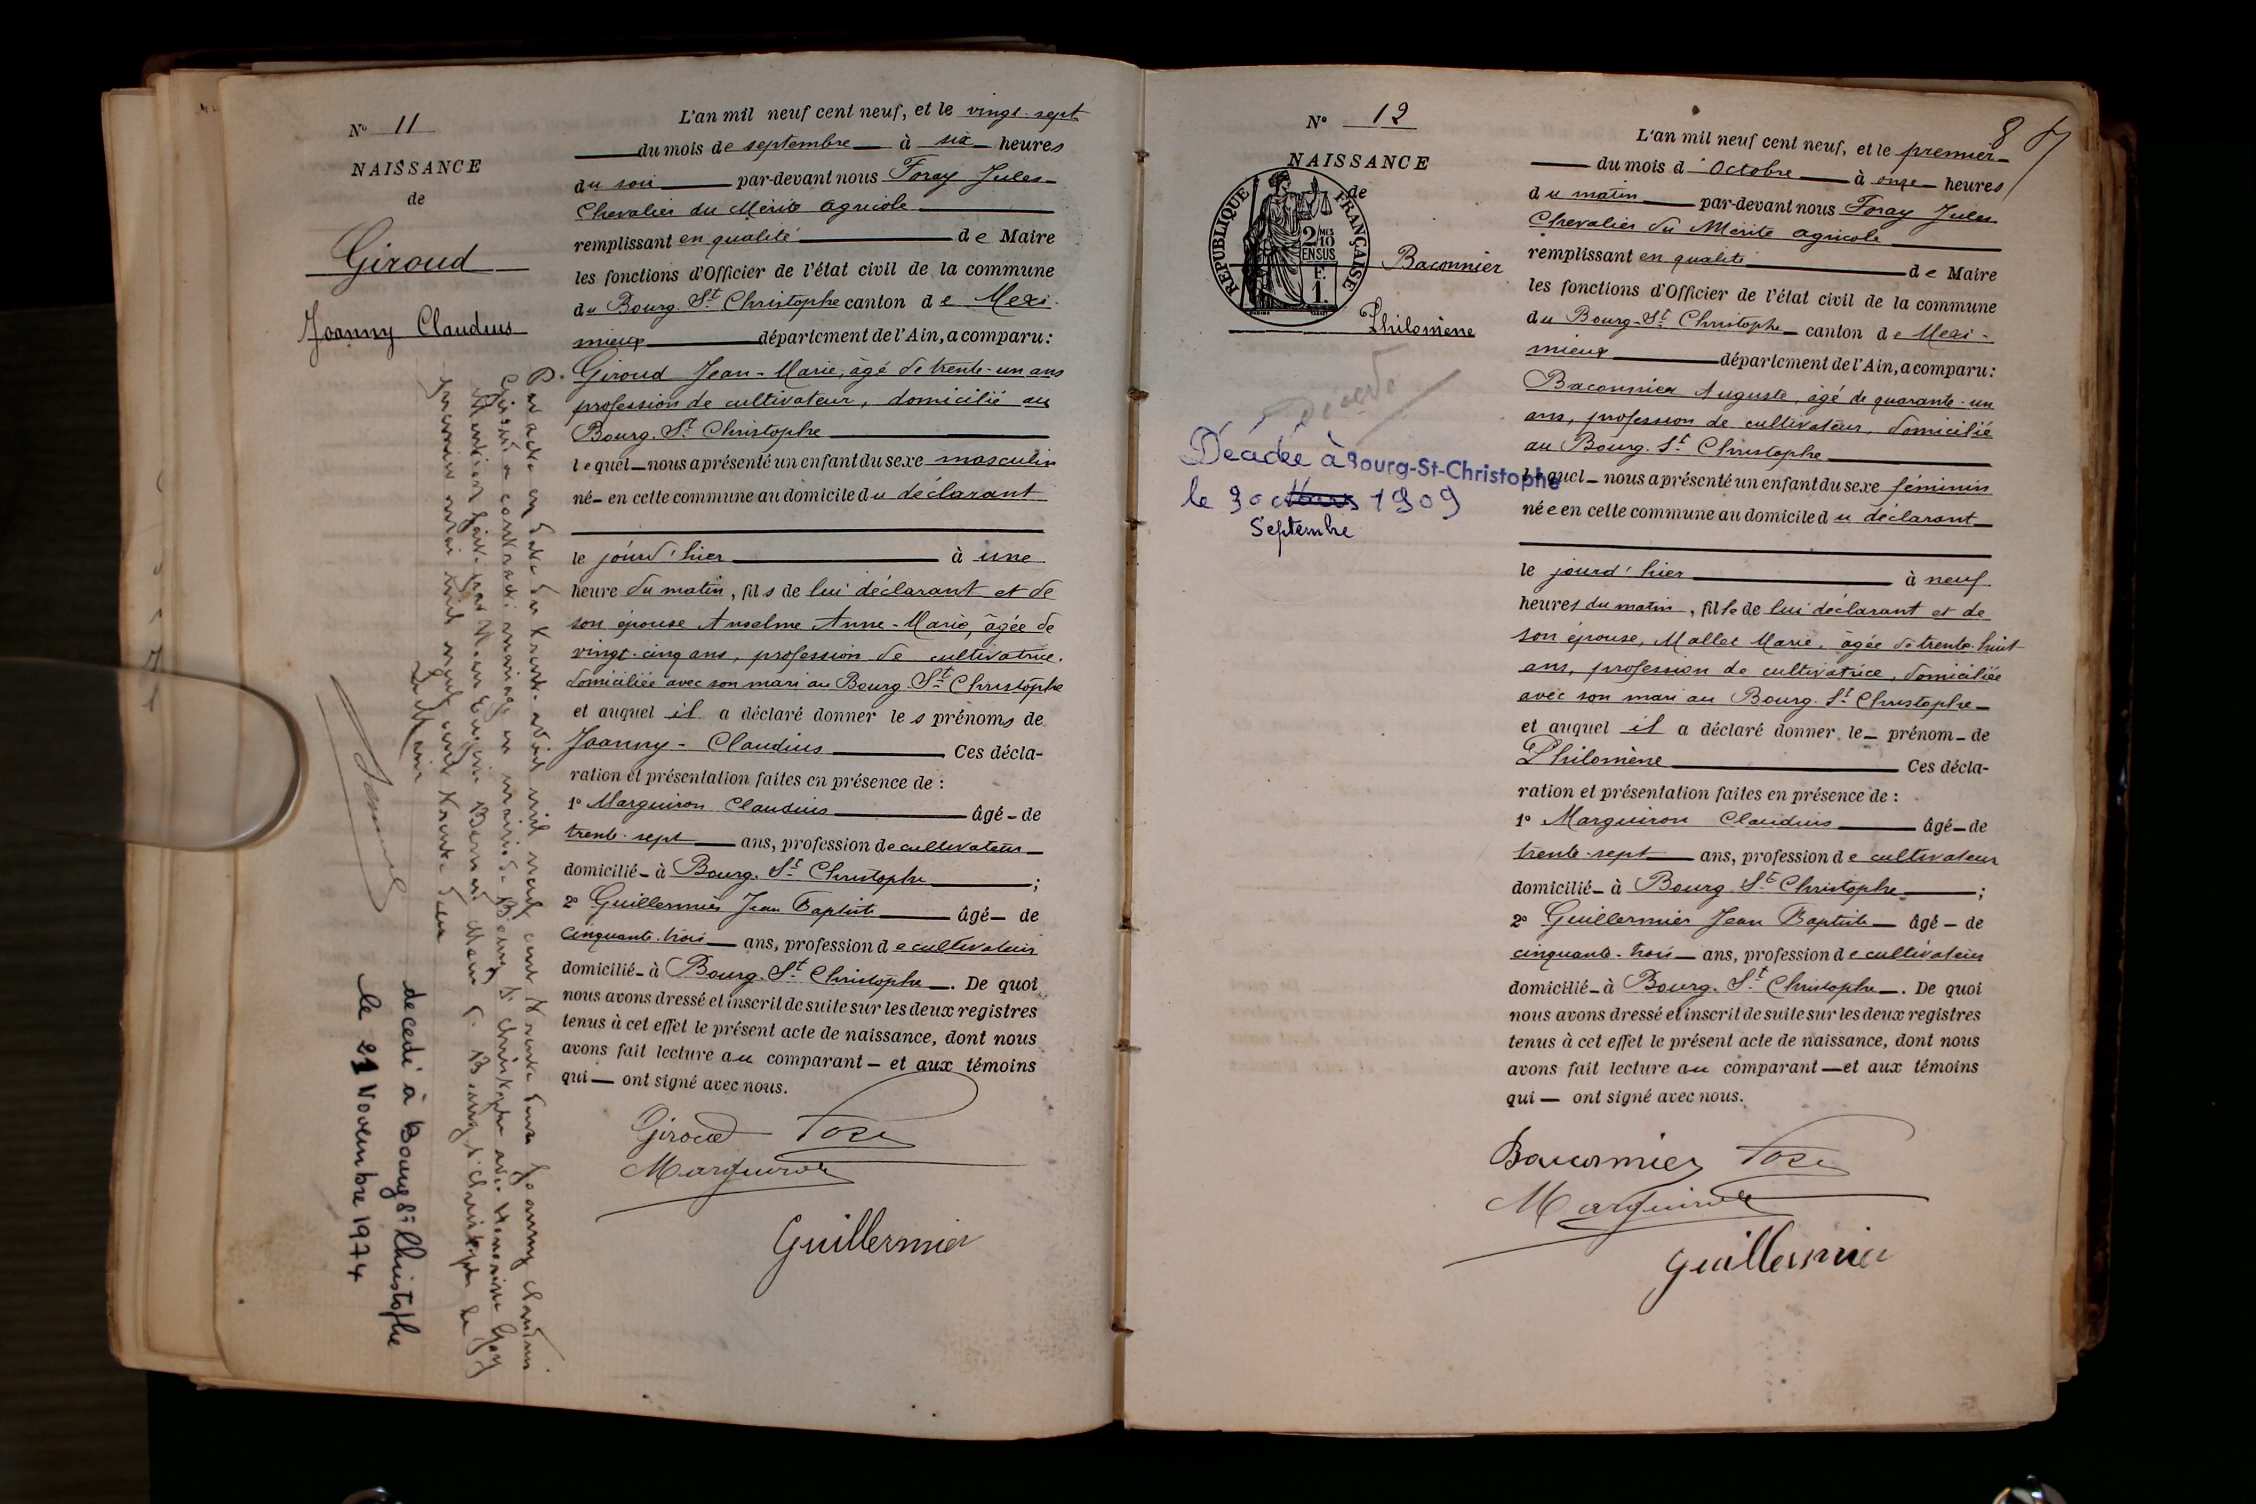 N° 11
NAISSANCE
de
Giroud
Joanny Claudius
L'an mil neuf cent neuf, et le vingt-sept
du mois de septembre à six heures
du soir par-devant nous Foray Jules
Chevalier du Mérite agricole
remplissant en qualité de Maire
les fonctions d'Officier de l'état civil de la commune
du Bourg-St Christophe canton de Mexi-
mieux département de l'Ain, a comparu:
Giroud Jean-Marie, âgé de trente-un ans
profession de cultivateur, domicilié au
Bourg-St Christophe
lequel nous a présenté un enfant du sexe masculin
né en cette commune au domicile du déclarant
le jourd'hier à une
heure du matin, fils de lui déclarant et de
son épouse Anselme Anne-Marie, âgée de
vingt-cinq ans, profession de cultivatrice,
domiciliée avec son mari au Bourg-St Christophe
et auquel il a déclaré donner les prénoms de
Joanny-Claudius Ces décla-
ration et présentation faites en présence de :
1° Marguiron Claudius âgé de
trente-sept ans, profession de cultivateur
domicilié à Bourg-St Christophe ;
2° Guillermier Jean Baptiste âgé de
cinquante-trois ans, profession de cultivateur
domicilié à Bourg-St Christophe. De quoi
nous avons dressé et inscrit de suite sur les deux registres
tenus à cet effet le présent acte de naissance, dont nous
avons fait lecture au comparant et aux témoins
qui ont signé avec nous.
Giroud
Marguiron
Guillermier
Par acte en date du trente avril mil neuf cent trente deux Joanny Claudius
Giroud a contracté mariage en mairie de Bourg St Christophe avec
Mention faite par Nous Eugène Bernard Maire de Bourg St Christophe le
mai mil neuf cent trente deux
Le Maire
decedé à Bourg St Christophe
le 21 Novembre 1974
N° 12
8
NAISSANCE
de
RÉPUBLIQUE FRANÇAISE
2/10 MES
EN SUS
F.
1.
Baconnier
Philomène
Décédée
Décédée à Bourg-St-Christophe
le 30 1909
Septembre
L'an mil neuf cent neuf, et le premier
du mois d'Octobre à onze heures
du matin par-devant nous Foray Jules
Chevalier du Mérite agricole
remplissant en qualité de Maire
les fonctions d'Officier de l'état civil de la commune
du Bourg-St Christophe canton de Mexi-
mieux département de l'Ain, a comparu:
Baconnier Auguste, âgé de quarante-un
ans, profession de cultivateur, domicilié
au Bourg-St Christophe
lequel nous a présenté un enfant du sexe féminin
née en cette commune au domicile du déclarant
le jourd'hier à neuf
heures du matin, fille de lui déclarant et de
son épouse, Mallet Marie, âgée de trente-huit
ans, profession de cultivatrice, domiciliée
avec son mari au Bourg-St Christophe
et auquel il a déclaré donner le prénom de
Philomène Ces décla-
ration et présentation faites en présence de :
1° Marguiron Claudius âgé de
trente-sept ans, profession de cultivateur
domicilié à Bourg-St Christophe ;
2° Guillermier Jean Baptiste âgé de
cinquante-trois ans, profession de cultivateur
domicilié à Bourg-St Christophe. De quoi
nous avons dressé et inscrit de suite sur les deux registres
tenus à cet effet le présent acte de naissance, dont nous
avons fait lecture au comparant et aux témoins
qui ont signé avec nous.
Baconnier
Marguiron
Guillermier